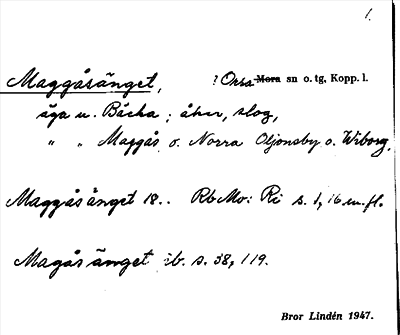 1.
Maggåsänget, ? Orsa Mora sn o. tg, Kopp. l.
äga u. Bäcka ; åker, slog,
" " Maggås o. Norra Oljonsby o. Wiborg.
Maggåsänget 18.. RbMo: Ri s. 1, 16 m. fl.
Magåsänget ib. s. 38, 119.
Bror Lindén 1947.